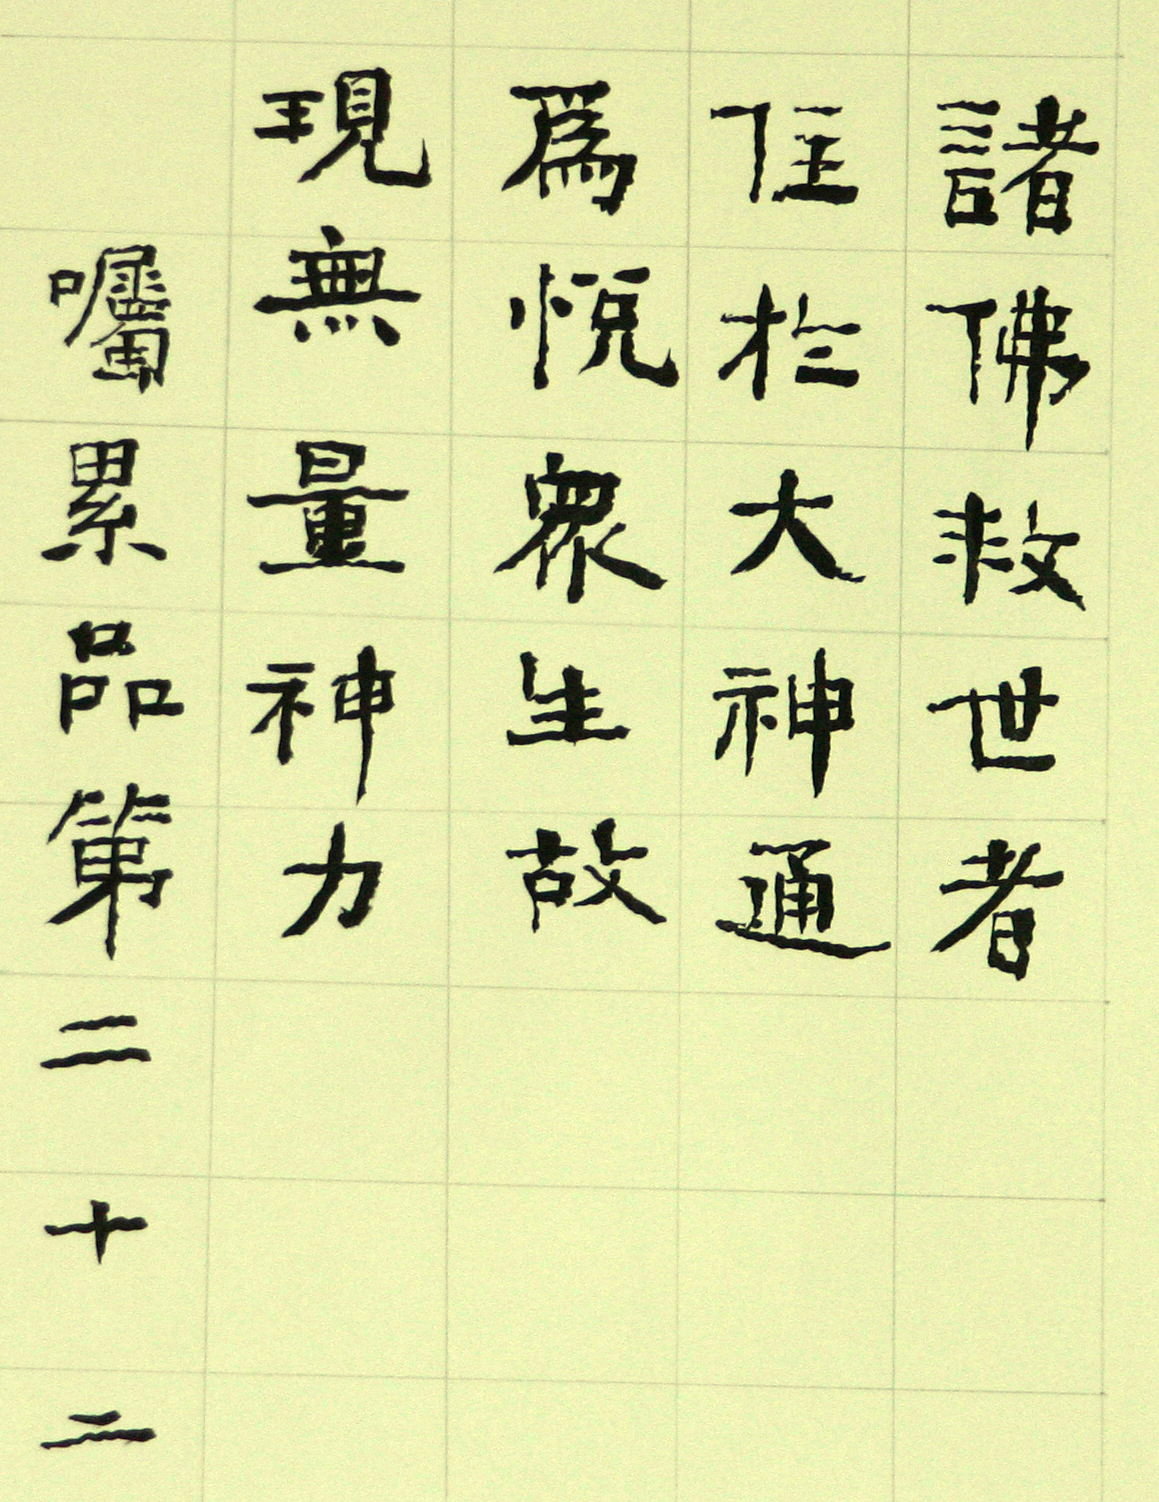 諸佛救世者
住於大神通
爲悅衆生故
現無量神力
囑累品第二十二